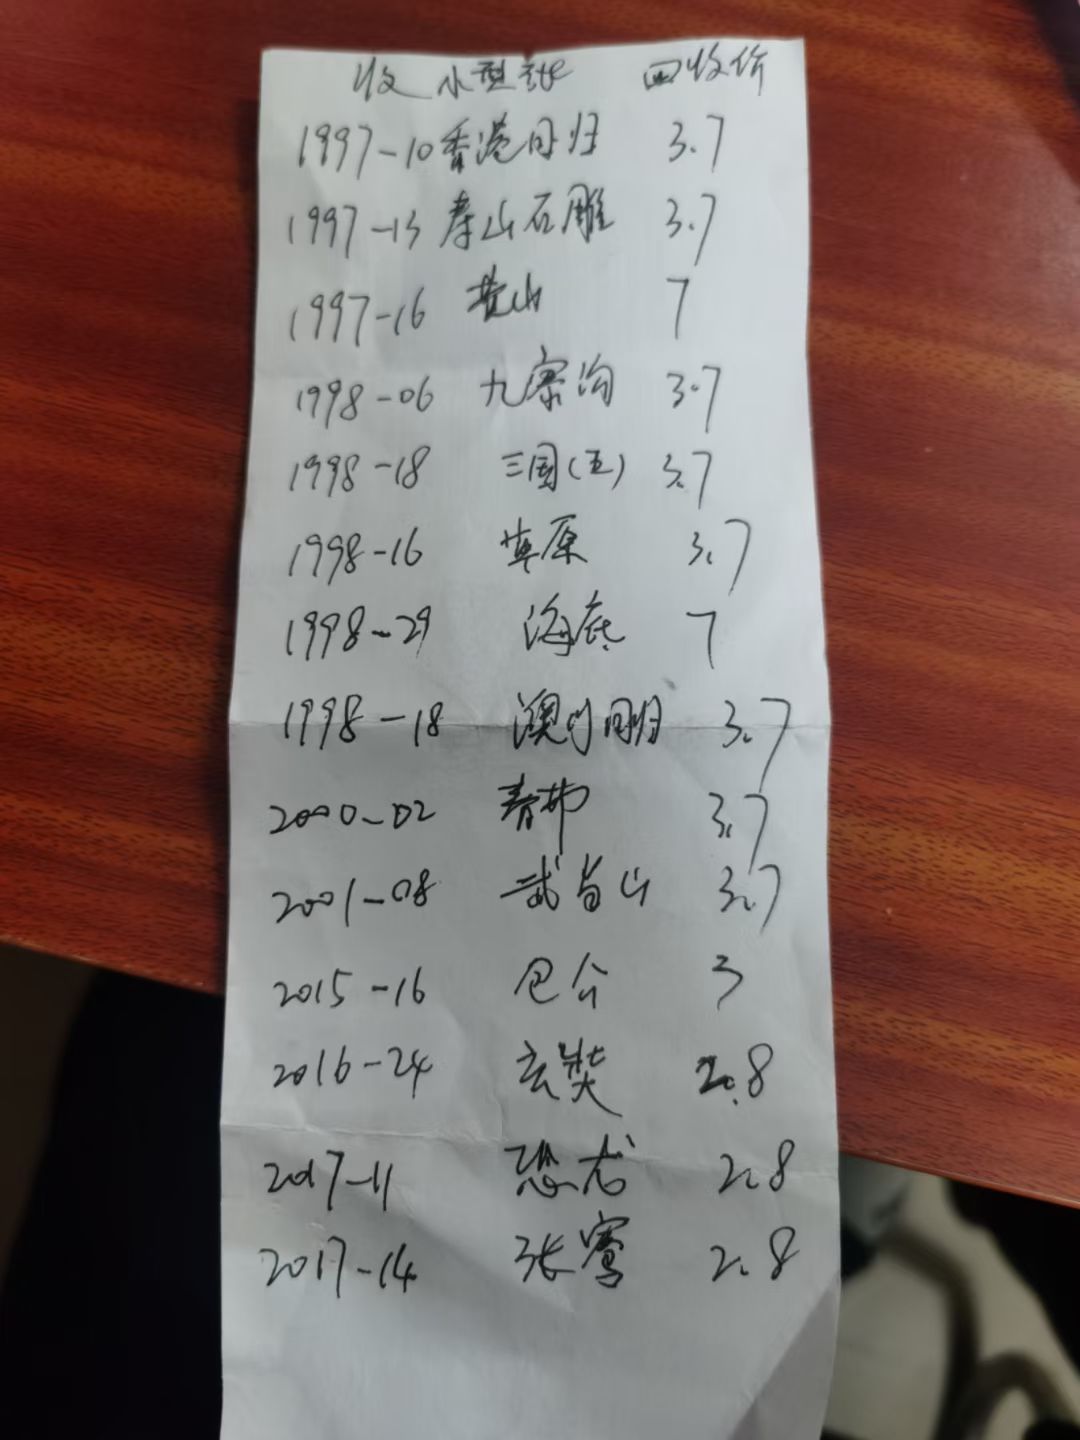 收小型张 回收价
1997-10香港回归 3.7
1997-13 寿山石雕 3.7
1997-16 黄山 7
1998-06 九寨沟 3.7
1998-18 三国(五) 3.7
1998-16 草原 3.7
1998-29 海底 7
1998-18 澳门回归 3.7
2000-02 春节 3.7
2001-08 武当山 3.7
2015-16 包公 3
2016-24 玄奘 2.8
2017-11 恐龙 2.8
2017-14 张骞 2.8